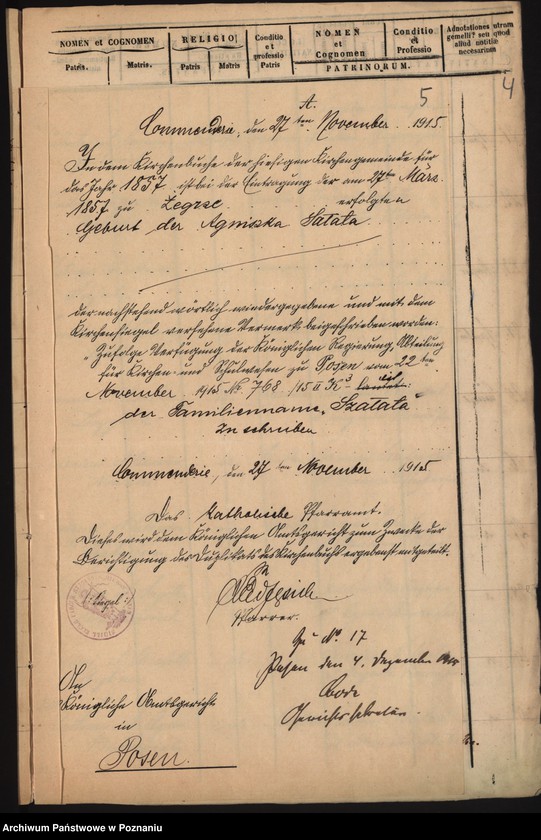 NOMEN et COGNOMEN
Patris.
Matris.
RELIGIO
Patris
Matris
Conditio et professio Patris
NOMEN et Cognomen
Conditio et Professio
PATRINORUM.
Adnotationes utrum gemelli? seu quod aliud notitiae necessarium
5
4
A.
Commenderie, den 27ten November 1915
In dem Kirchenbuche der hiesigen Kirchengemeinde für
das Jahr 1857 ist bei der Eintragung der am 27ten März
1857 zu Zegrze erfolgten
Geburt der Agniszka Satata
der nachstehend wörtlich wiedergegebene und mit dem
Kirchensiegel versehene Vermerk beigeschrieben worden:
"Zufolge Verfügung der Königlichen Regierung, Abteilung
für Kirchen- und Schulwesen zu Posen vom 22ten
November 1915 No 768/15 II K
der Familienname "Szatata"
zu schreiben
Commenderie, den 27ten November 1915
Das Katholische Pfarramt.
Dieses wird dem Königlichen Amtsgericht zum Zwecke der
Berichtigung des Duplikats des Kirchenbuchs ergebenst mitgeteilt.
Siegel
Pfarrer.
Zu No. 17
Posen den 4. Dezember
Gerichtssekretär.
An
Königliche Amtsgericht
in
Posen.
Archiwum Państwowe w Poznaniu
szukajwarchiwach.pl